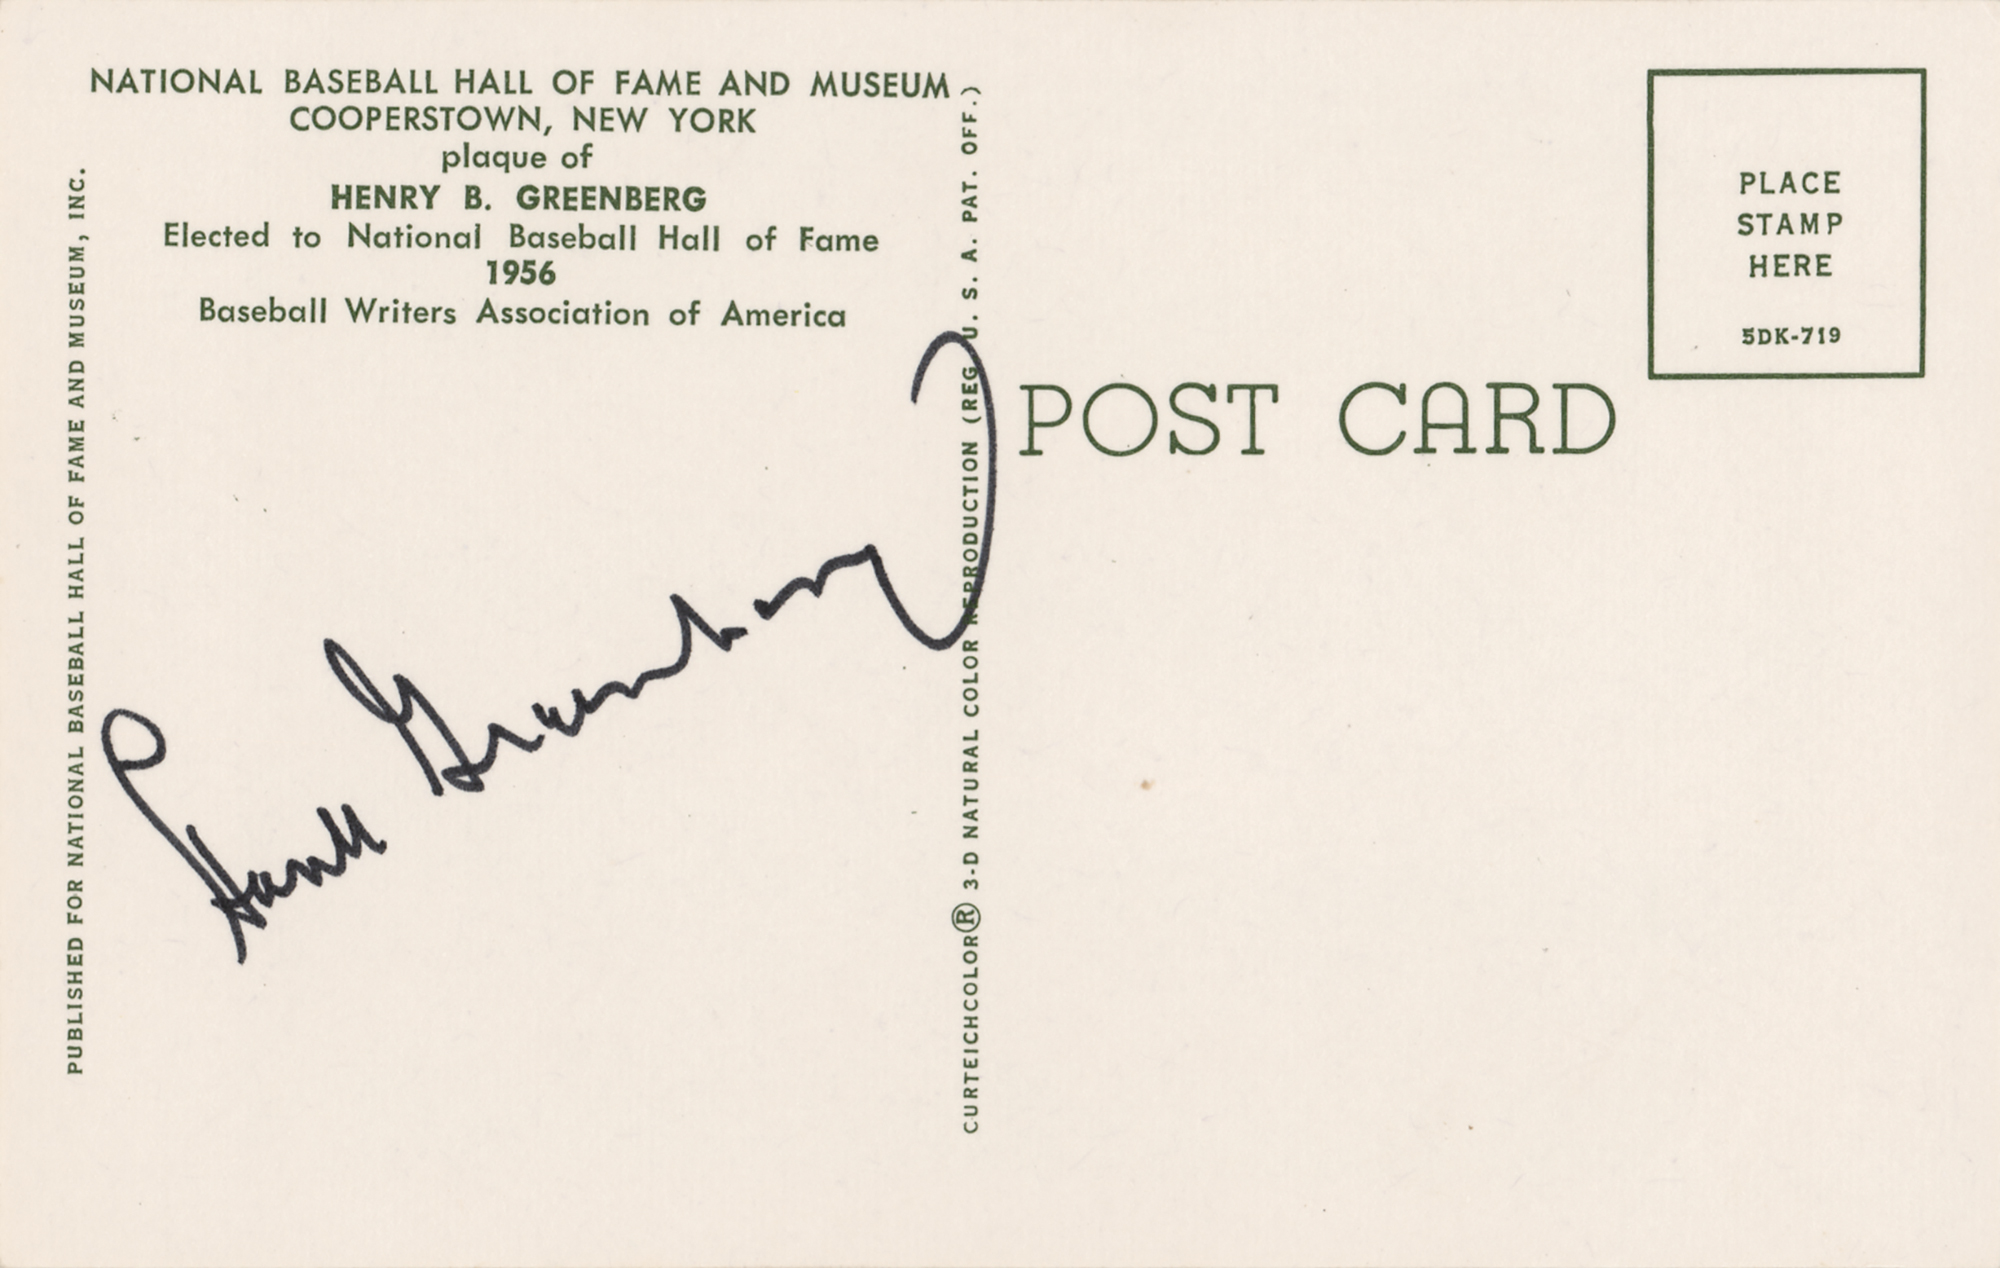 NATIONAL BASEBALL HALL OF FAME AND MUSEUM
COOPERSTOWN, NEW YORK
plaque of
HENRY B. GREENBERG
Elected to National Baseball Hall of Fame
1956
Baseball Writers Association of America
PUBLISHED FOR NATIONAL BASEBALL HALL OF FAME AND MUSEUM, INC.
Hank Greenberg
CURTEICHCOLOR® 3-D NATURAL COLOR REPRODUCTION (REG. U. S. A. PAT. OFF.)
POST CARD
PLACE
STAMP
HERE
5DK-719